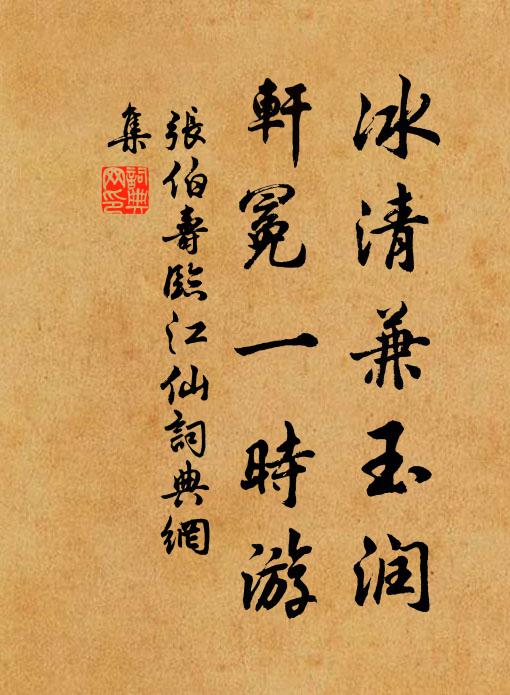 冰清兼玉润
軒冕一時游
張伯壽臨江仙詞典網
集
詞典網印